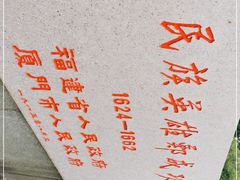 民族英雄郑成
1624—1662
福建省人民政府
厦门市人民政府